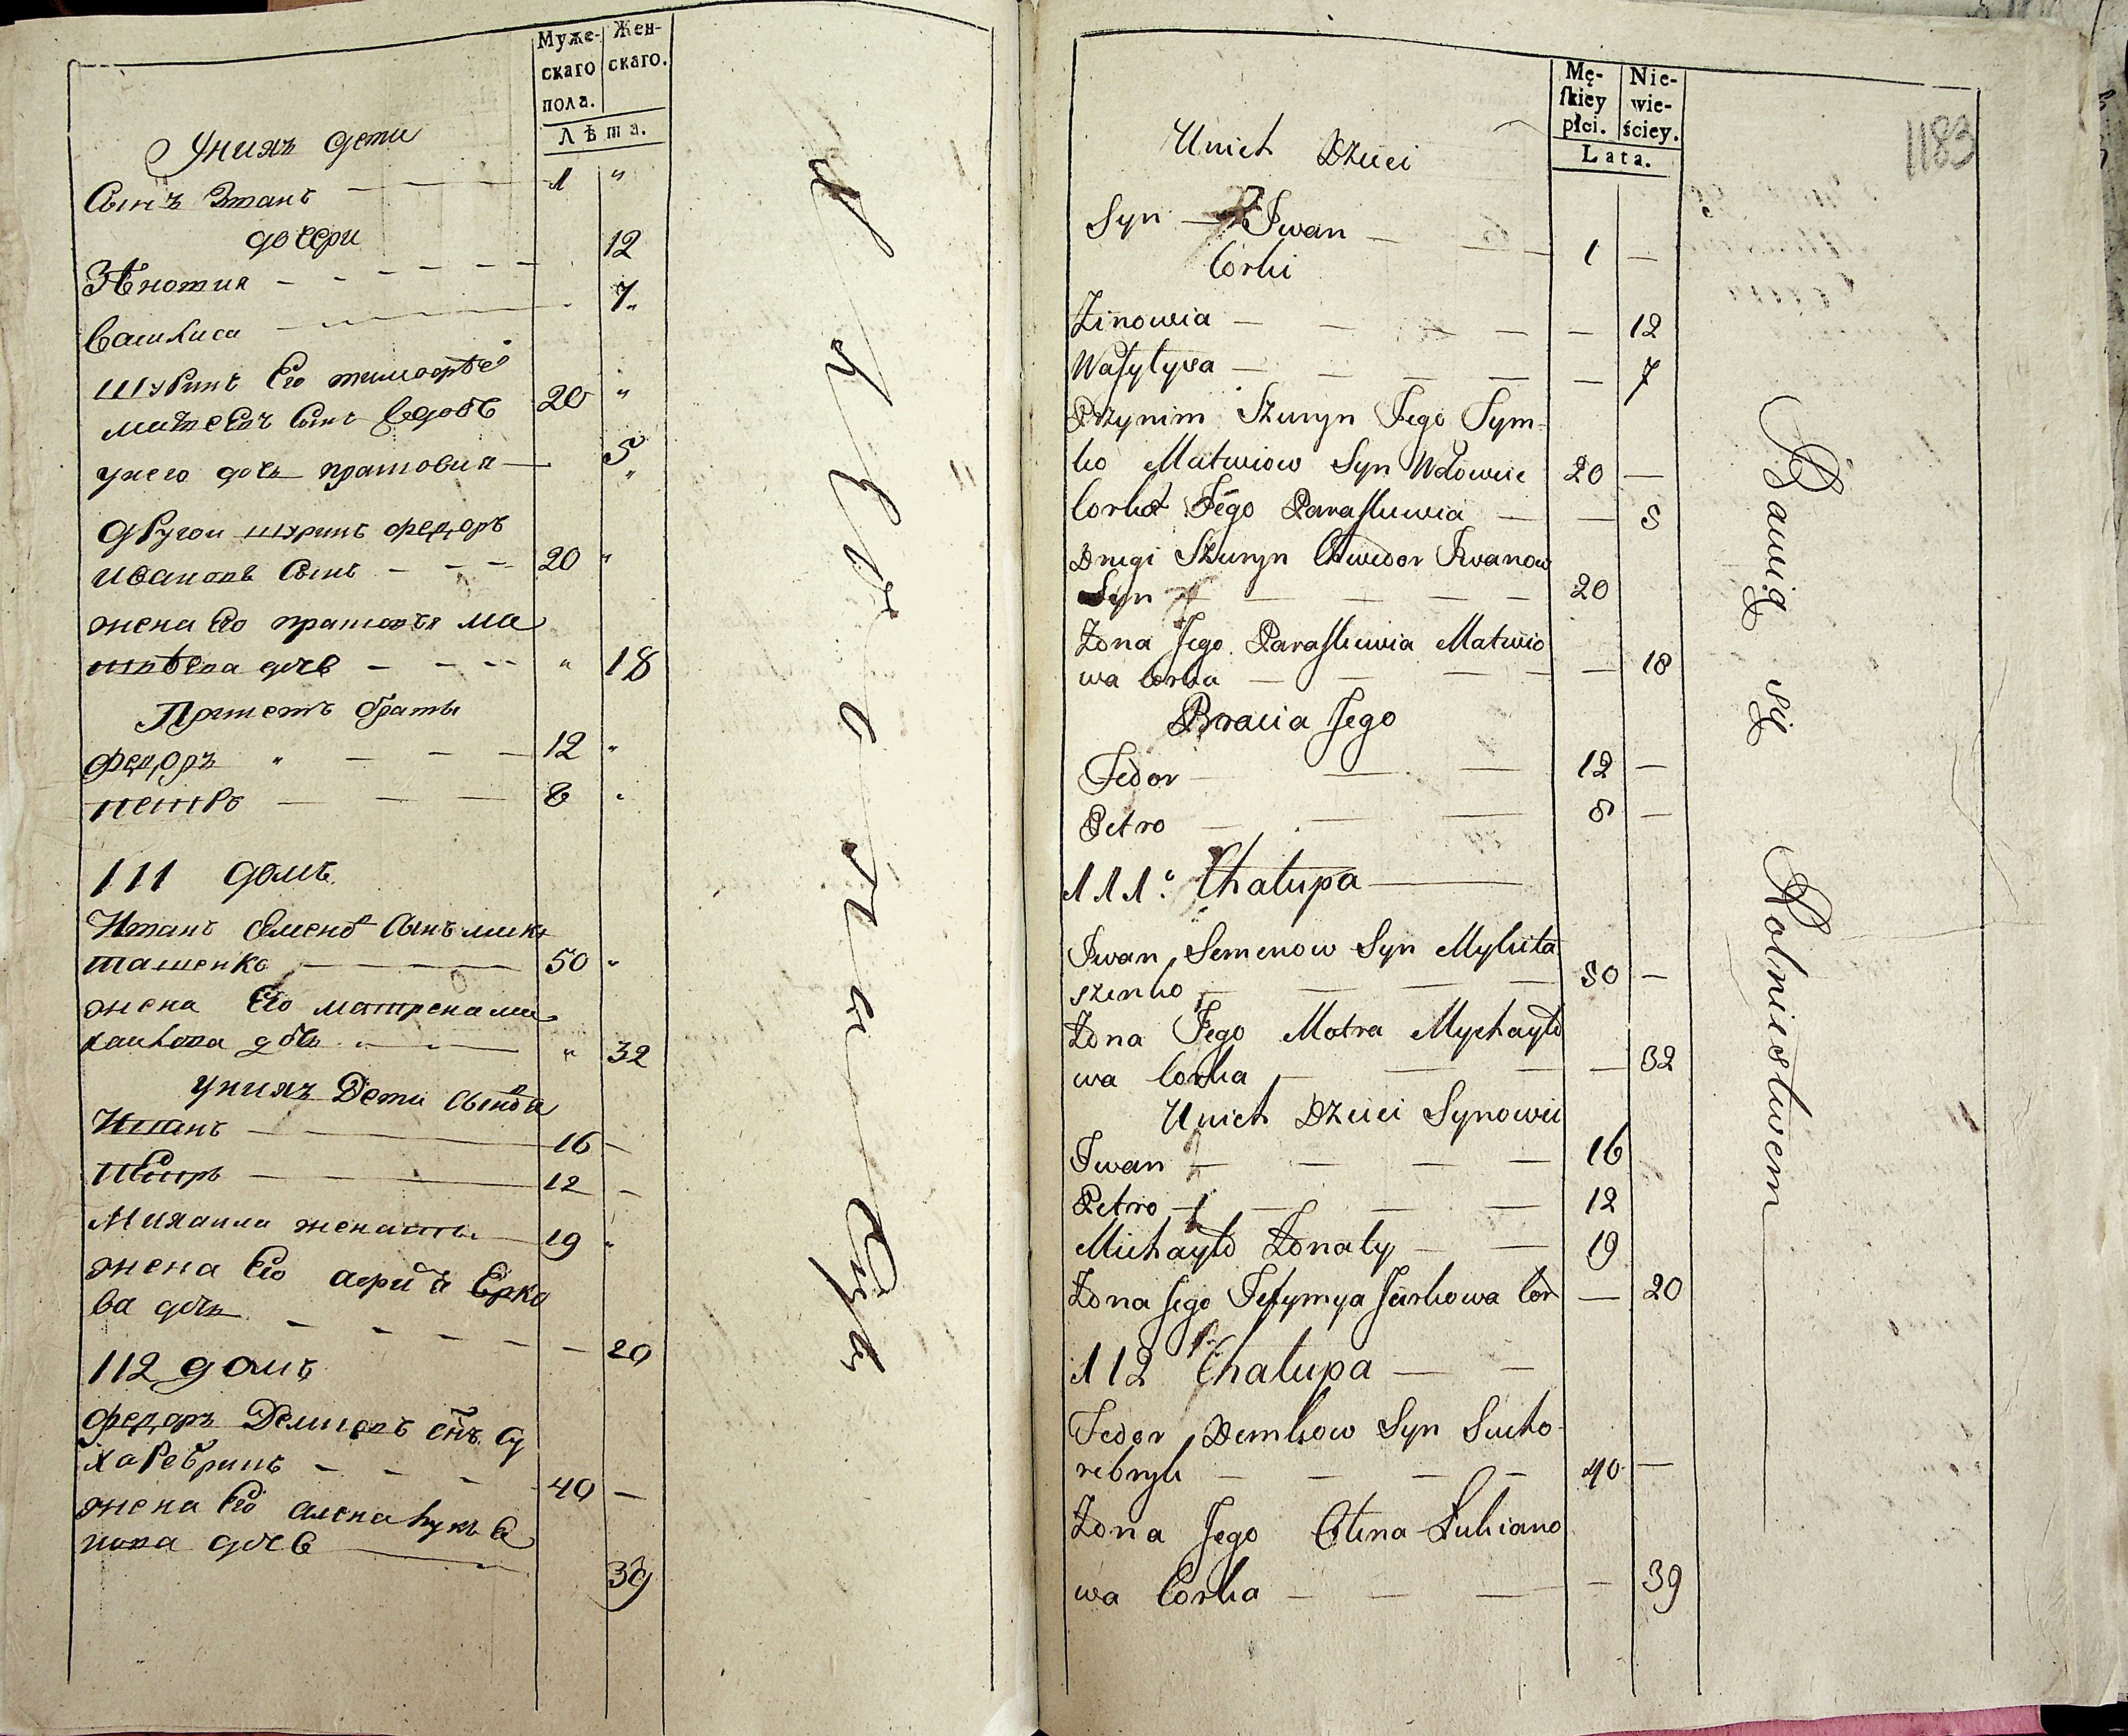 Муже-
скаго
пола.
Жен-
скаго.
Лѣта.
Унихъ дети
Сынъ 1 "
дочери
12
7
Василиса
Шуринъ Его тимофѣй
20 "
унего дочь 5
другои шуринъ федоръ
Ивановъ Сынъ 20 "
жена Его ма
дочь " 18
браты
федоръ " 12 "
петръ 8 "
111 домъ
Иванъ Семеновъ Сынъ мики
ташенко 50 "
жена Его матрена ми
хаилова дочь " 32
унихъ Дети Сыновя
Иванъ 16
петръ 12
Михаила женаты 19 "
жена Его Ерко
ва дочь 20
112 домъ
федоръ Демковъ снъ Су
хоребринъ 40
жена Его алена лукья
нова дочь 39
Mę-
ſkiey
płci.
Nie-
wie-
ściey.
Lata.
1183
Unich Dzieci
Syn Iwan 1 —
Corki
Zinowia — 12
Wasylysa — 7
Przynim Szuryn Jego Tym-
ko Matwiow Syn Wdowiec 20 —
Corka Jego Paraskiewia — 5
Drugi Szuryn Chwedor Iwanow
Syn 20
Żona Jego Paraskiewia Matwio
wa Corka — 18
Bracia Jego
Fedor 12 —
Petro 8 —
111. Chałupa
Iwan Semenow Syn Mykita
szenko 50 —
Żona Jego Motra Mychayło
wa Corka — 32
Unich Dzieci Synowie
Iwan 16
Petro 12
Michayło Żonaty 19
Żona Jego Jefymya Jarkowa Cor — 20
112 Chałupa
Fedor Demkow Syn Sucho-
rebryk 40 —
Żona Jego Olena Łukiano
wa Corka — 39
Bawią się Rolnictwem